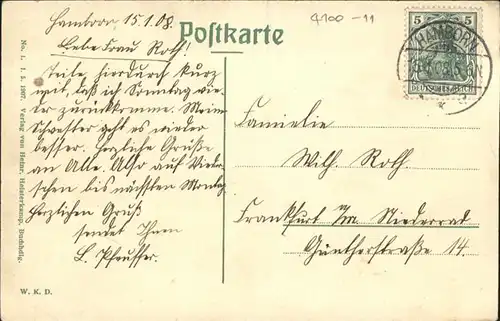 Hamborn 15.1.08.
4100-11
Postkarte
Liebe Frau Roth!
Teile hierdurch kurz
mit, daß ich Sonntag wie
der zurückkomme. Meine
Schwester geht es wieder
besser. Herzliche Grüße
an Alle. Also auf Wieder
sehen bis nächsten Montag
Herzlichen Gruß
sendet Ihnen
L. Pfeuffer.
5 5
HAMBORN
DEUTSCHES REICH
Familie
Wilh. Roth
Frankfurt a/M. Niederrad
Güntherstraße 14.
No. 1. 1. 2. 1907. Verlag von Heinr. Heisterkamp, Buchhdlg.
W. K. D.